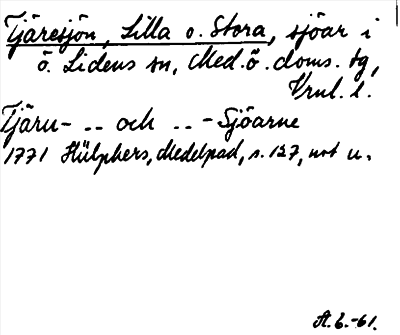 Tjäresjön, Lilla o. Stora, sjöar i
ö. Lidens sn, Med. ö. doms. tg,
Vrnl. l.
Tjäru- .. och .. - Sjöarne
1771 Hülphers, Medelpad, s. 127, not u.
A.L.-61.